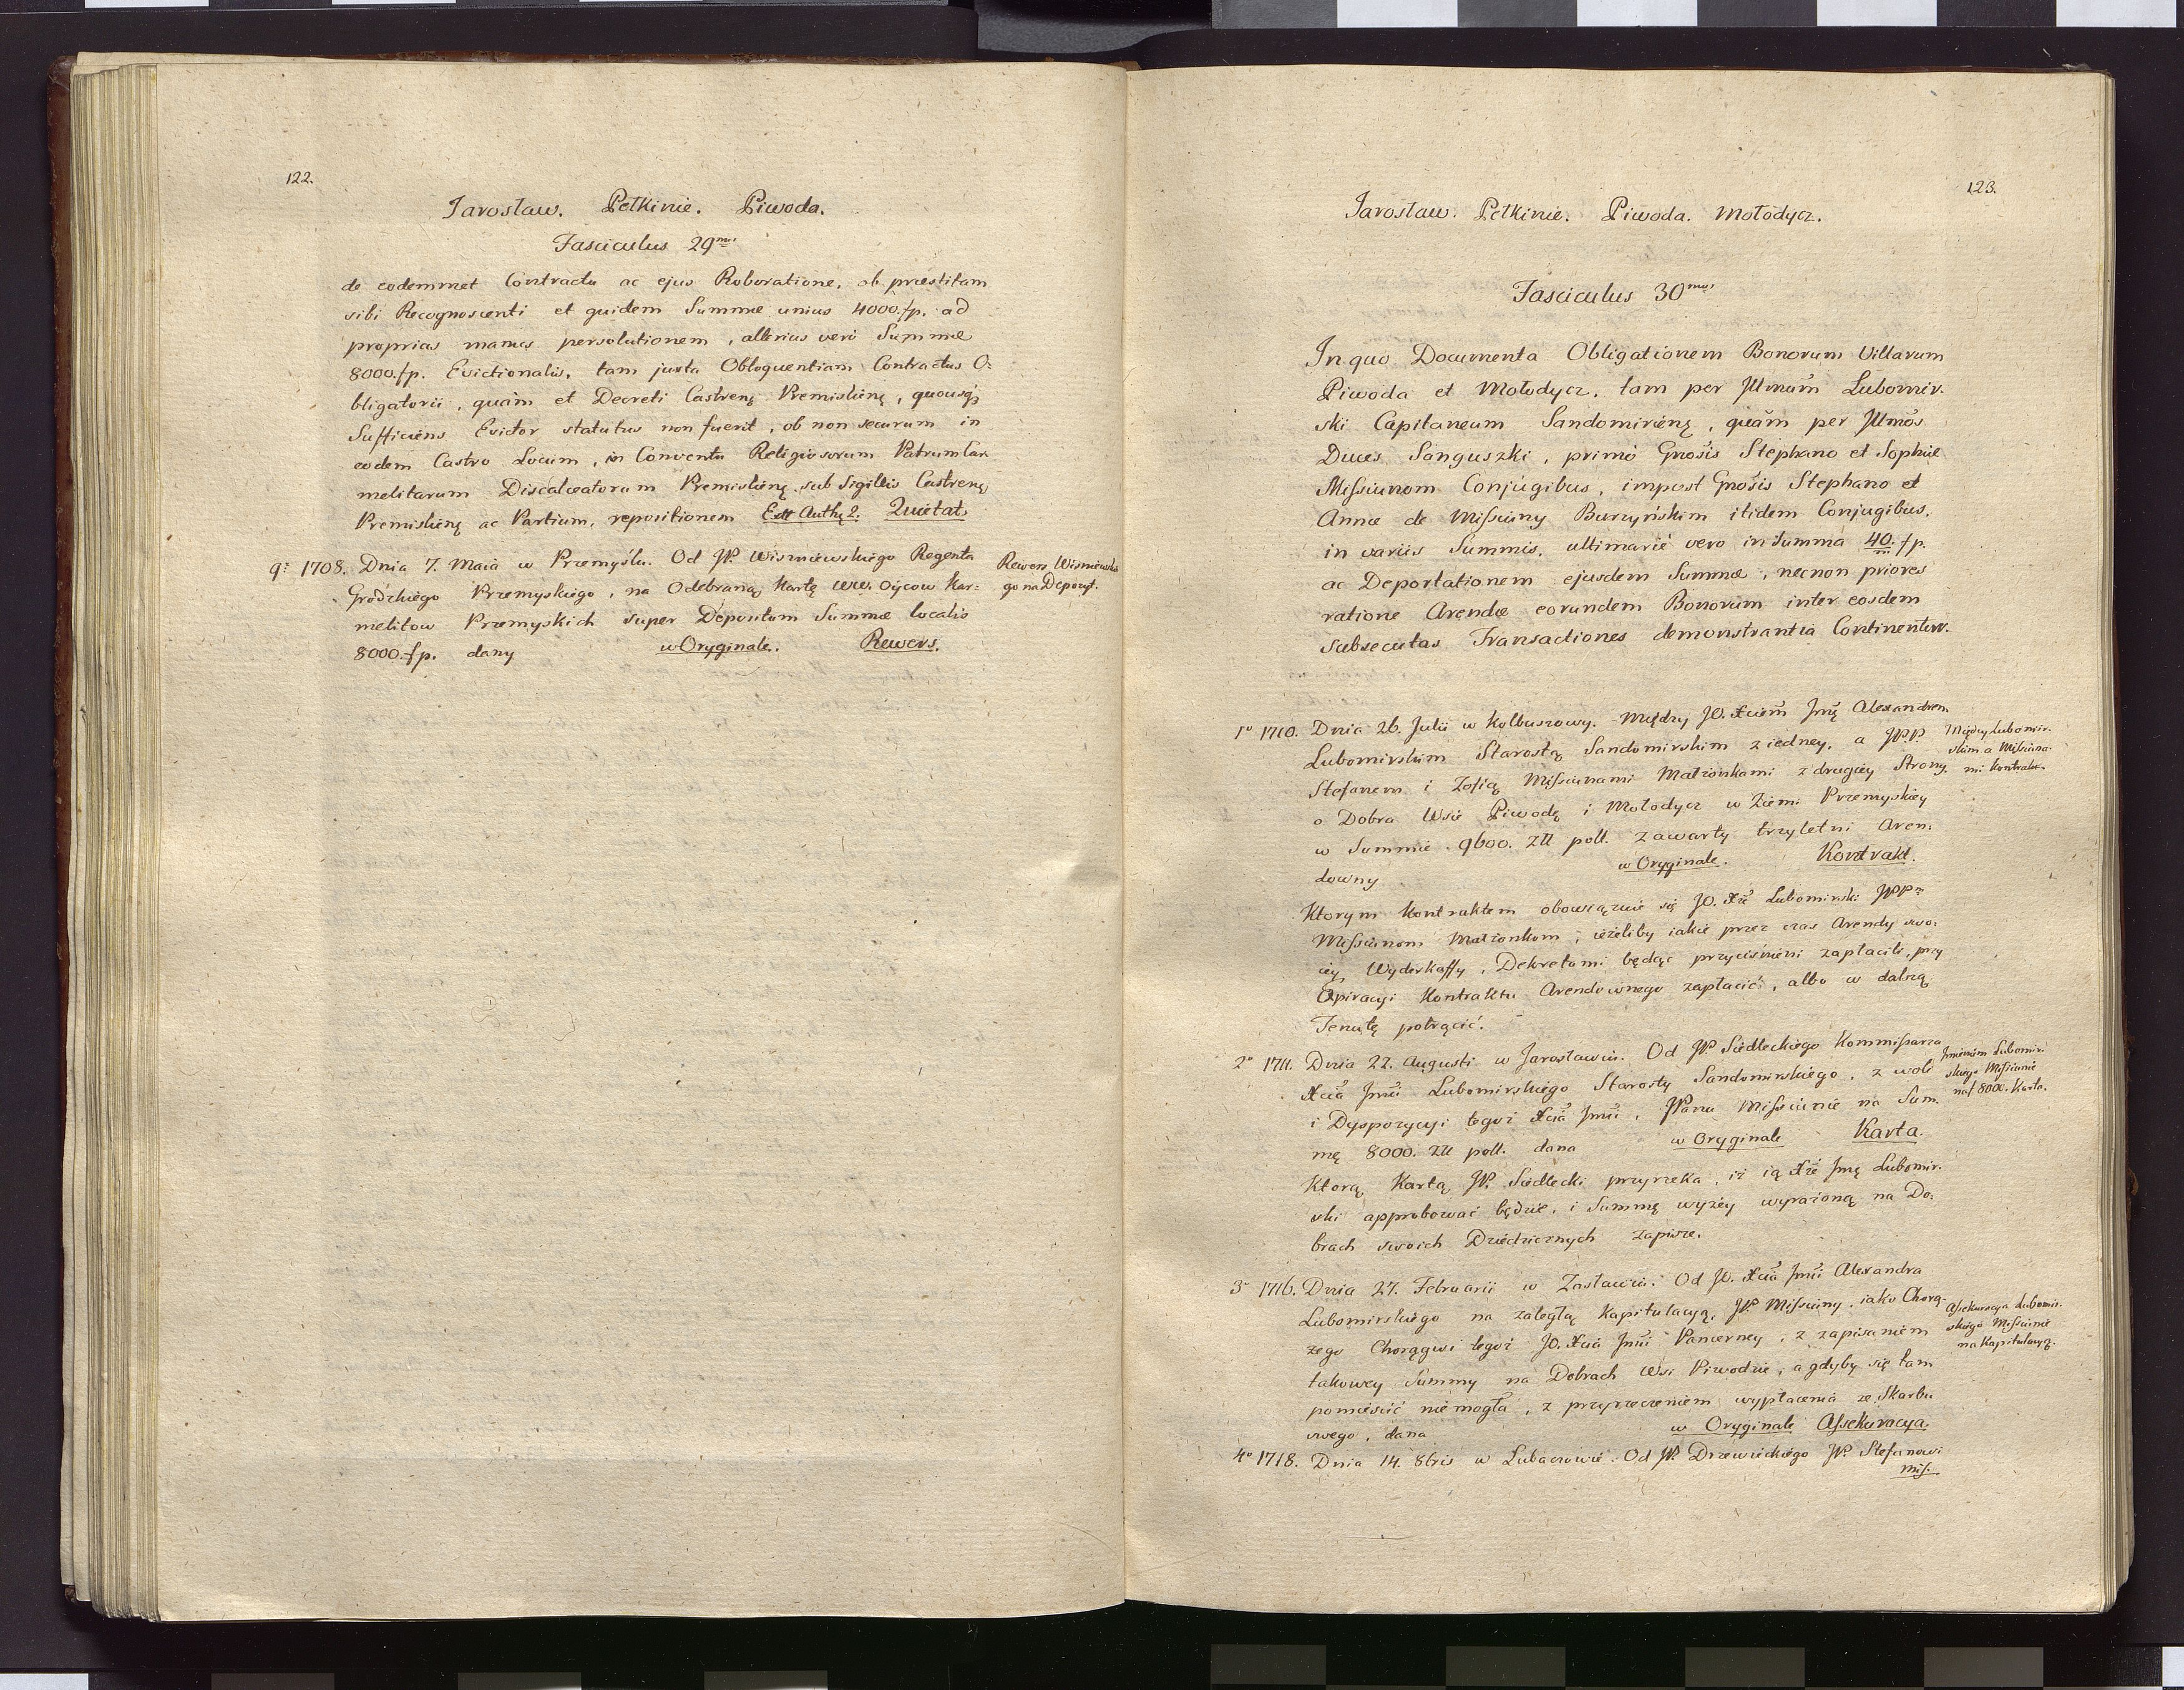 122.
Jarosław. Pełkinie. Piwoda.
Fasciculus 29mus
de eodemmet Contractu ac ejus Roboratione, ob præstitam
sibi Recognoscenti et quidem Summæ unius 4000.fp. ad
proprias manus persolutionem, alterius vero Summæ
8000.fp. Evictionalis, tam juxta Obloquentiam Contractus O:
bligatorii, quàm et Decreti Castreñ Premislieñ, quousq
Sufficiens Evictor statutus non fuerit, ob non securum in
eodem Castro Locum, in Conventu Religiosorum Patrum Car
melitarum Discalceatorum Premislieñ sub Sigillis Castreñ
Premislieñ ac Partium, repositionem Extt Auth: 2. Quietat.
9o 1708. Dnia 7. Maia w Przemyślu. Od JP. Wiszniewskiego Regenta
Grodzkiego Przemyskiego, na Odebraną Kartę WW. Oycow Kar:
melitow Przemyskich super Depositum Summæ localis
8000.fp. dany w Oryginale. Rewers.
Rewers Wiszniewskie
go na Depozyt.
123.
Jarosław. Pełkinie. Piwoda. Mołodycz.
Fasciculus 30mus
In quo Documenta Obligationem Bonorum Villarum
Piwoda et Mołodycz, tam per Jllmum Lubomir.
ski Capitaneum Sandomirieñ, quàm per Jllmos
Duces Sanguszki, primò Gnosis Stephano et Sophiæ
Missiunom Conjugibus, impost Gnosis Stephano et
Annæ de Missiuny Burzyńskim itidem Conjugibus,
in variis Summis, ultimariè vero in Summa 40. fp.
ac Deportationem ejusdem Summæ, necnon priores
ratione Arendæ eorundem Bonorum inter eosdem
subsecutas Transactiones demonstrantia Continentur.
1o 1710. Dnia 26. Julii w Kolbuszowy. Między JO. Xciem Jmę Alexandrem
Lubomirskim Starostą Sandomirskim z iedney, a JPP
Stefanem i Zofią Missiunami Małżonkami z drugiey Strony
o Dobra Wsie Piwodę i Mołodycz w Ziemi Przemyskiey
w Summie 9600. Zll poll. zawarty trzyletni Aren:
downy w Oryginale. Kontrakt.
Między Lubomir.
skim a Missiuna.
mi Kontrakt.
Ktorym Kontraktem obowiązuie się JO. Xże Lubomirski JPPm
Missiunom Małżonkom, ieżeliby iakie przez czas Arendy swo:
iey Wyderkaffy, Dekretami będąc przyciśnieni zapłacili, przy
Expiracyi Kontraktu Arendownego zapłacić, albo w dalszą
Tenutę potrącić.
2o 1711. Dnia 22. Augusti w Jarosławiu. Od JP. Siedleckiego Kommissarza
Xcia Jmci Lubomirskiego Starosty Sandomirskiego, z woli
i Dyspozycyi tegoż Xcia Jmci, JPanu Missiunie na Sum.
mę 8000. Zll poll. dana w Oryginale Karta.
Jmieniem Lubomir:
skiego Missiunie
na f 8000. Karta.
Ktorą Kartą JP. Siedlecki przyrzeka, iż ią Xże Jmę Lubomir.
ski approbować będzie, i Summę wyżey wyrażoną na Do:
brach swoich Dziedzicznych zapisze.
3o 1716. Dnia 27. Februarii w Zasławiu. Od JO. Xcia Jmci Alexandra
Lubomirskiego na zaległą Kapitulacyą, JP Missiuny, iako Chorą.
żego Chorągwi tegoż JO. Xcia Jmci Pancerney, z zapisaniem
takowey Summy na Dobrach Wsi Piwodzie, a gdyby się tam
pomieścić niemogła, z przyrzeczeniem wypłacenia ze Skarbu
swego, dana w Oryginale Assekuracya.
Assekuracya Lubomir.
skiego Missiunie
na Kapitulacyą.
4o 1718. Dnia 14. 8bris w Lubaczowie. Od JP. Drzewieckiego JP. Stefanowi
Miss.